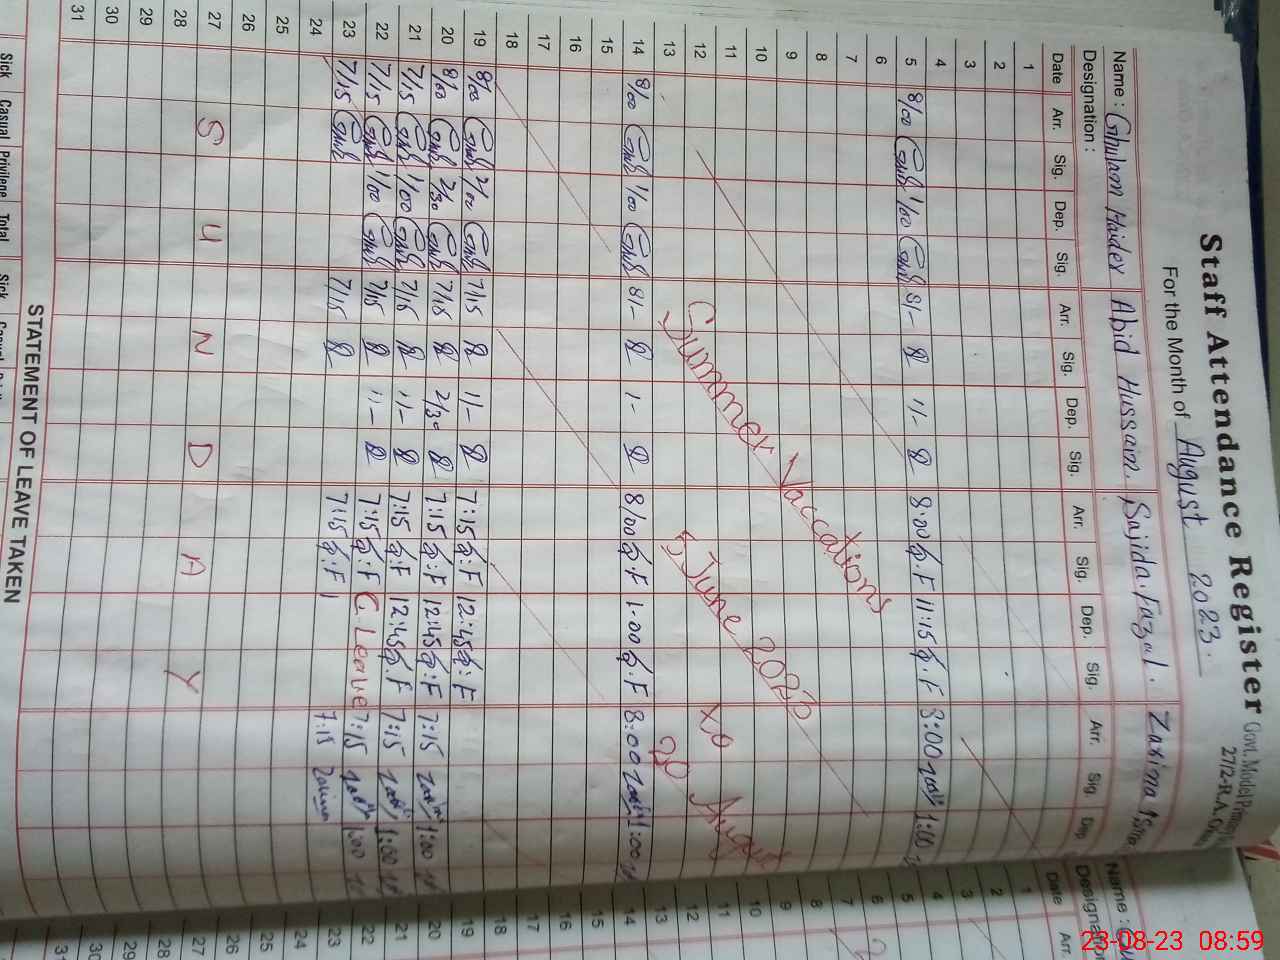 Staff Attendance Register
Govt. Model Primary
27/2-R.A.
For the Month of August 2023.
Name : Ghulam Haider Abid Hussain. Sajida Fazal. Zarina
Designation :
Date Arr. Sig. Dep. Sig. Arr. Sig. Dep. Sig. Arr. Sig. Dep. Sig. Arr. Sig. Dep
1
2
3
4
5 8/00 1/00 8/- 11- 8:00 S.F 11:15 S.F 8:00 1:00
6
7
8
9
10
11
12
13
Summer Vaccations
5 June 2023 to
20 August
14 8/00 1/00 8/- 1- 8/00 S.F 1:00 S.F 8:00 1:00
15
16
17
18
19 8/00 2/00 7/15 11- 7:15 S.F 12:45 S.F
20 8/00 2/30 7/15 2/30 7:15 S.F 12:45 S.F 7:15 1:00
21 7/15 1/00 7/15 11- 7:15 S.F 12:45 S.F 7:15 1:00
22 7/15 1/00 7/15 11- 7:15 S.F C. Leave 7:15 1:00
23 7/15 7/15 7:15 S.F 7:15 Zarina
24
25
26
27 S U N D A Y
28
29
30
31
STATEMENT OF LEAVE TAKEN
Sick Casual Privilege Total Sick
Name :
Designation
Date Arr.
1
2
3
4
5
6
7
8
9
10
11
12
13
14
15
16
17
18
19
20
21
22
23
24
25
26
27
28
29
30
31
23-08-23 08:59